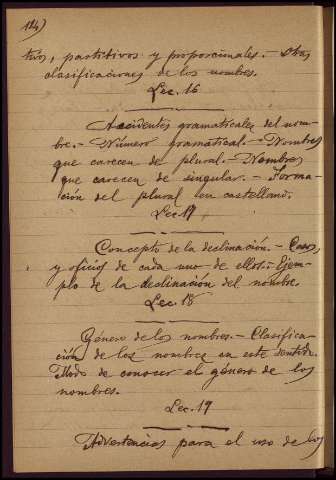 124)
tivos, partitivos y proporcionales.- Otras
clasificaciones de los nombres.
Lec. 16
Accidentes gramaticales del nom-
bre.- Número gramatical.- Nombres
que carecen de plural.- Nombres
que carecen de singular.- Forma-
ción del plural en castellano.
Lec. 17
Concepto de la declinación.- Casos,
y oficios de cada uno de ellos.- Ejem-
plo de la declinación del nombre.
Lec. 18
Género de los nombres.- Clasifica-
ción de los nombres en este sentido.
Modo de conocer el género de los
nombres.
Lec. 19
Advertencias para el uso de los